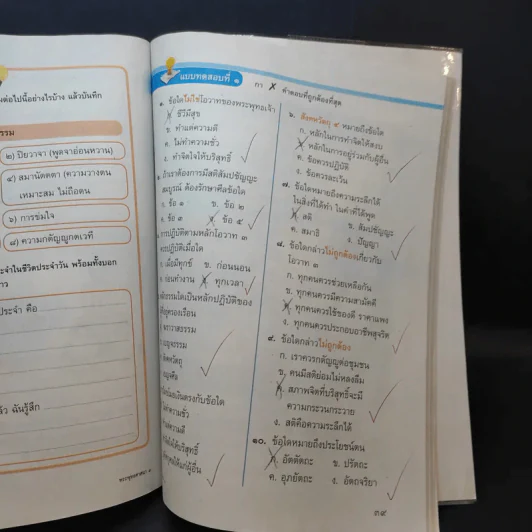 นต่อไปนี้อย่างไรบ้าง แล้วบันทึก
ธรรม
๒) ปิยวาจา (พูดจาอ่อนหวาน)
๔) สมานัตตตา (ความวางตน
เหมาะสม ไม่ถือตน
๖) การข่มใจ
๘) ความกตัญญูกตเวที
ะจำในชีวิตประจำวัน พร้อมทั้งบอก
ประจำ คือ
ล้ว ฉันรู้สึก
แบบทดสอบที่ ๑
กา X คำตอบที่ถูกต้องที่สุด
๑. ข้อใดไม่ใช่โอวาทของพระพุทธเจ้า
ชีวีมีสุข
ข. ทำแต่ความดี
ค. ไม่ทำความชั่ว
ง. ทำจิตใจให้บริสุทธิ์
ถ้าเราต้องการมีสติสัมปชัญญะ
สมบูรณ์ ต้องรักษาศีลข้อใด
ก. ข้อ ๑ ข. ข้อ ๒
ค. ข้อ ๓ ง. ข้อ ๕
การปฏิบัติตามหลักโอวาท ๓
ควรปฏิบัติเมื่อใด
ก. เมื่อมีทุกข์ ข. ก่อนนอน
ค. ก่อนทำงาน ง. ทุกเวลา
เป็นหลักปฏิบัติของ
ฆราวาสธรรม
เบญจธรรม
สังคหวัตถุ
เบญจศีล
ตรงกับข้อใด
ความชั่ว
ความดี
ให้บริสุทธิ์
ผู้อื่น
๖. สังคหวัตถุ ๔ หมายถึงข้อใด
ก. หลักในการทำจิตใจให้สงบ
หลักในการอยู่ร่วมกับผู้อื่น
ค. ข้อควรปฏิบัติ
ง. ข้อควรละเว้น
๗. ข้อใดหมายถึงความระลึกได้
ในสิ่งที่ได้ทำ ในคำที่ได้พูด
สติ ข. สัมปชัญญะ
ค. สมาธิ ง. ปัญญา
๘. ข้อใดกล่าวไม่ถูกต้องเกี่ยวกับ
โอวาท ๓
ก. ทุกคนควรช่วยเหลือกัน
ข. ทุกคนควรมีความสามัคคี
ทุกคนควรใช้ของดี ราคาแพง
ง. ทุกคนควรประกอบอาชีพสุจริต
๙. ข้อใดกล่าวไม่ถูกต้อง
ก. เราควรกตัญญูต่อชุมชน
ข. คนมีสติย่อมไม่หลงลืม
สภาพจิตที่บริสุทธิ์จะมี
ความกระวนกระวาย
ง. สติคือความระลึกได้
๑๐. ข้อใดหมายถึงประโยชน์ตน
อัตตัตถะ ข. ปรัตถะ
ค. อุภยัตถะ ง. อัตถจริยา
๓๙